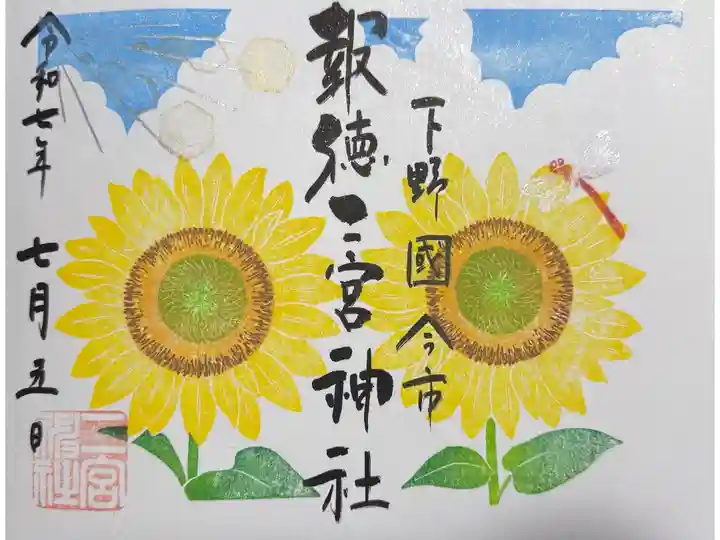 下野國今市
報徳二宮神社
令和七年七月五日
二宮
神社